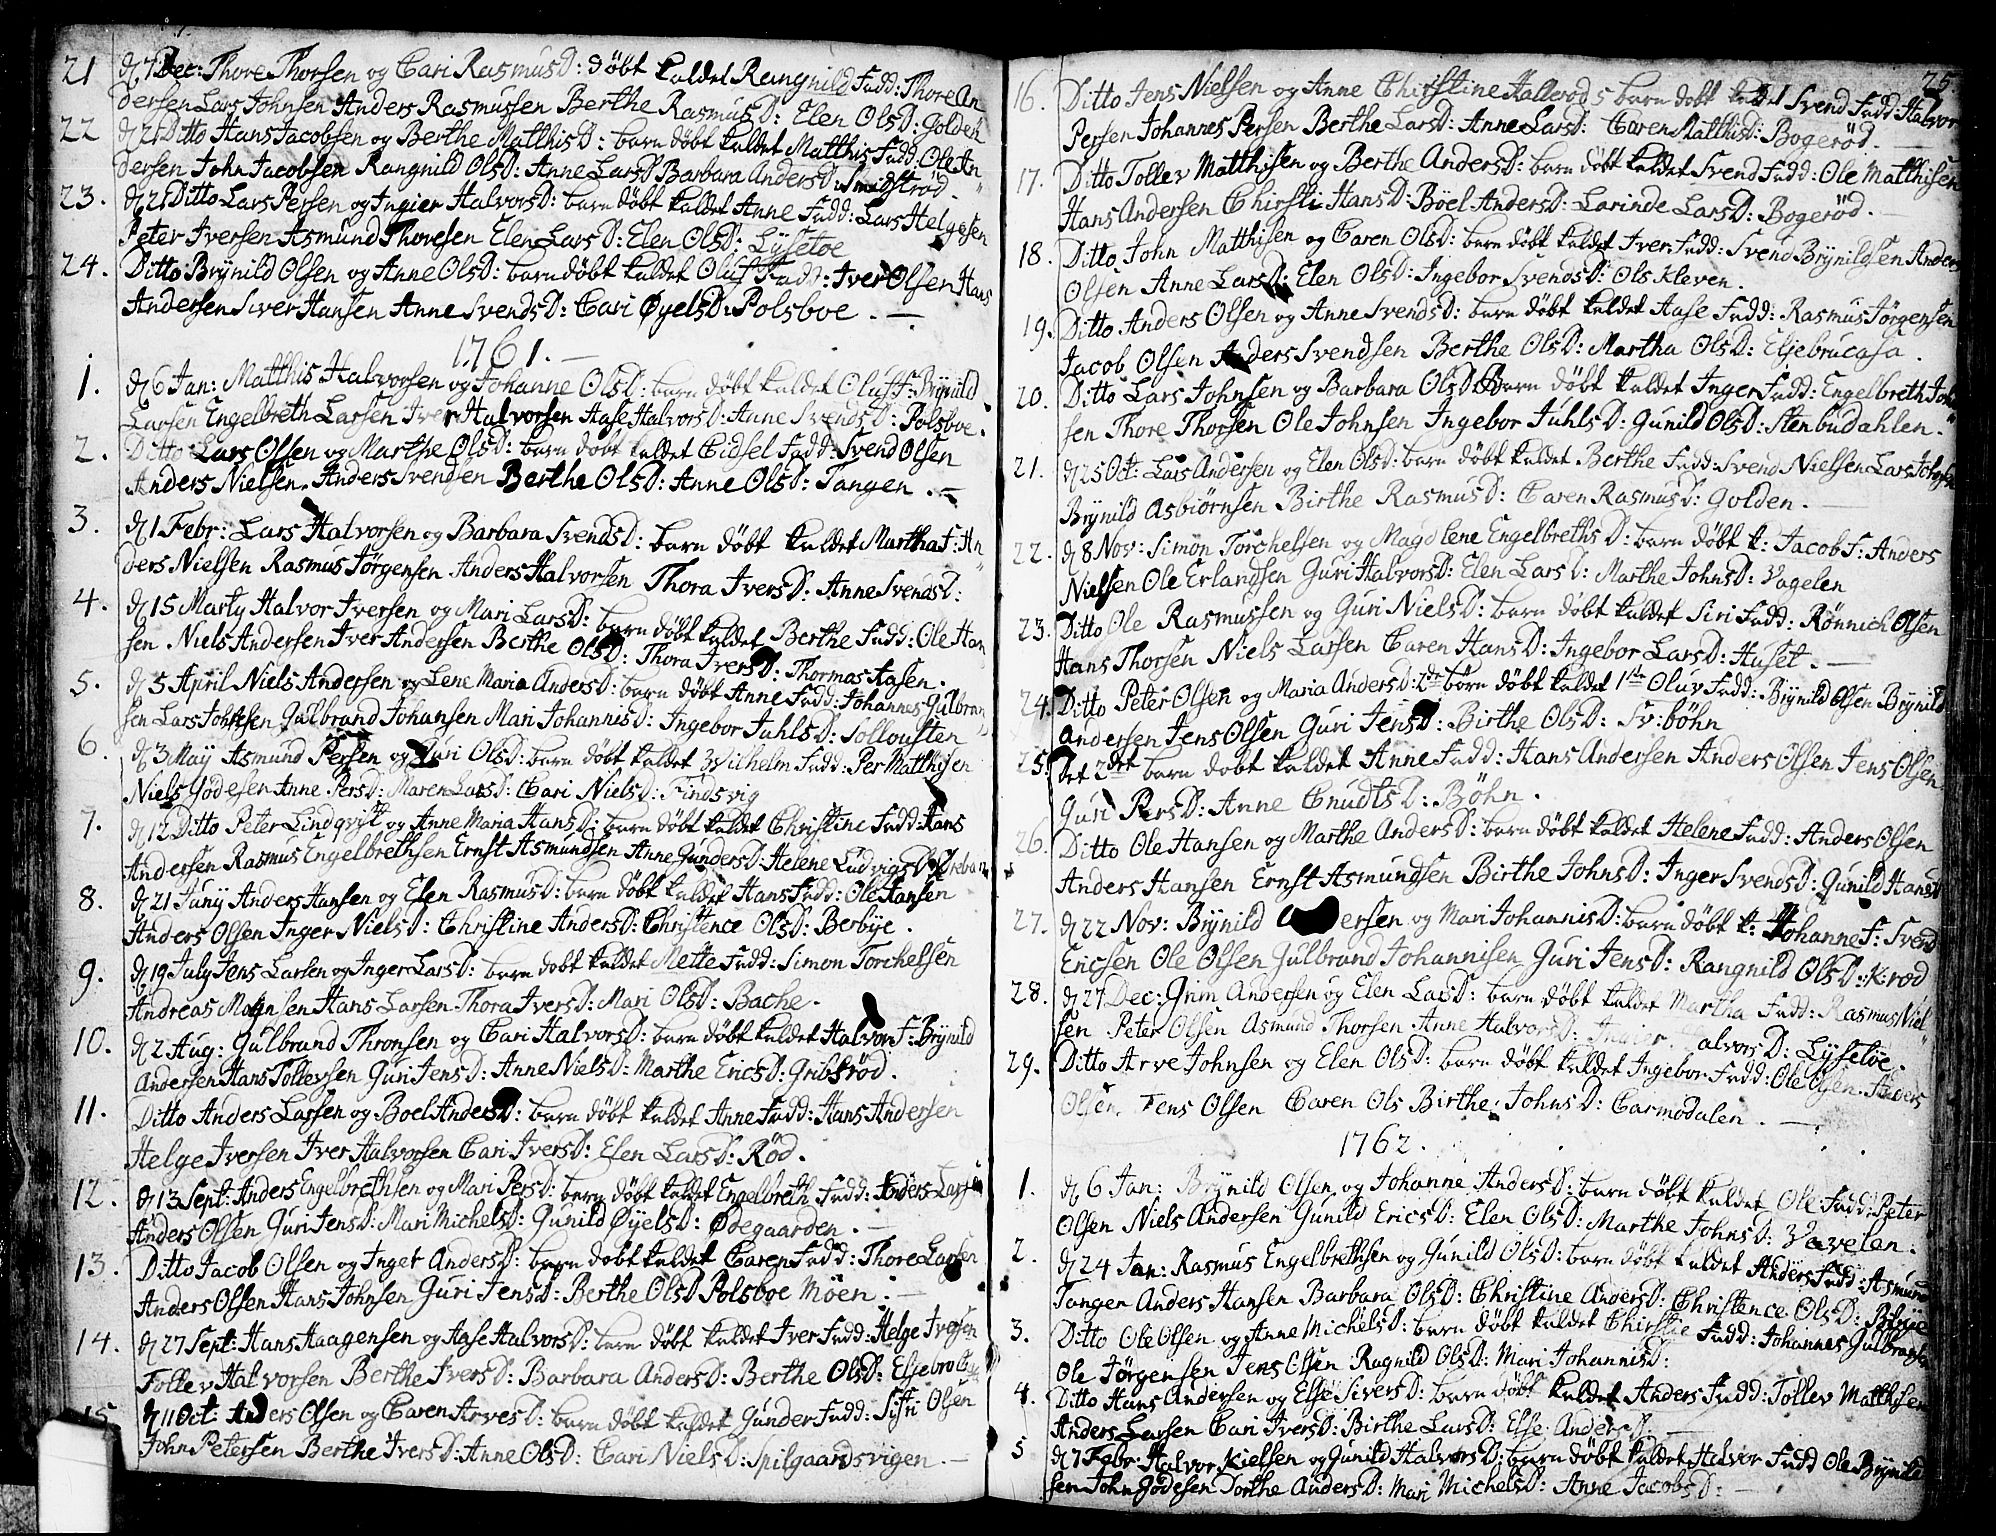 21 d 7 Dec: Thore Thorsen og Cari RasmusD: döbt kaldet Rangnild Fadd: Thore An
dersen Lars Johnsen Anders Rasmussen Berthe RasmusD: Elen OlsD: Golden
22 d 21 Ditto Hans Jacobsen og Berthe MatthisD: barn döbt kaldet Matthis Fadd: Ole An
dersen John Jacobsen Rangnild OlsD: Anne LarsD Barbara AndersD: Smidströd
23. d 21 Ditto Lars Persen og Ingier HalvorsD: barn döbt kaldet Anne Fadd: Lars Helgesen
Peter Iversen Asmund Thoresen Elen LarsD: Elen OlsD: Lysetoe
24. Ditto Brynild Olsen og Anne OlsD: barn döbt kaldet Oluf Fadd: Iver Olsen Hans
Andersen Siver Hansen Anne SvendsD: Cari ØyelsD: Polsboe.
1761.
1. d 6 Jan: Matthis Halvorsen og Johanne OlsD: barn döbt kaldet Oluf F: Brynild
Larsen Engelbreth Larsen Iver Halvorsen Aase HalvorsD: Anne SvendsD: Polsboe.
2. Ditto Lars Olsen og Marthe OlsD: barn döbt kaldet Cidsel Fadd: Svend Olsen
Anders Nielsen Anders Svendsen Berthe OlsD: Anne OlsD: Tangen.
3. d 1 Febr: Lars Halvorsen og Barbara SvendsD: barn döbt kaldet Martha F: An
ders Nielsen Rasmus Jörgensen Anders Halvorsen Thora IversD: Anne SvendsD:
4. d 15 Marty Halvor Iversen og Mari LarsD: barn döbt kaldet Berthe Fadd: Ole Han
sen Niels Andersen Iver Andersen Berthe OlsD: Thora IversD: Thormas Aasen.
5. d 5 April Niels Andersen og Lene Maria AndersD: barn döbt Anne Fadd: Johannes Gulbran
sen Lars Johnsen Gulbrand Johansen Mari JohannisD: Ingebor JuhlsD: Sollousten
6. d 3 May Asmund Persen og Guri OlsD: barn döbt kaldet Vilhelm Fadd: Per Matthisen
Niels Godesen Anne PersD: Maren LarsD: Cari NielsD: Findsvig
7. d 12 Ditto Peter Lindqvist og Anne Maria HansD: barn döbt kaldet Christine Fadd: Hans
Andersen Rasmus Engelbrethsen Ernst Asmundsen Anne GundersD: Helene LudvigsD:
8. d 21 Juny Anders Hansen og Elen RasmusD: barn döbt kaldet Hans Fadd: Ole Hansen
Anders Olsen Inger NielsD: Christine AndersD: Christence OlsD: Berbye.
9. d 19 July Jens Larsen og Inger LarsD: barn döbt kaldet Mette Fadd: Simon Torchelsen
Andreas Hans Larsen Thora IversD: Mari OlsD: Bache.
10. d 2 Aug: Gulbrand Thronsen og Cari HalvorsD: barn döbt kaldet Halvor F: Brynild
Andersen Hans Tollevsen Guri JensD: Anne NielsD: Marthe EricsD: Gribsröd.
11. Ditto Anders Larsen og Boel AndersD: barn döbt kaldet Anne Fadd: Hans Andersen
Helge Iversen Iver Halvorsen Cari IversD: Elen LarsD: Röd.
12. d 13 Sept: Anders Engelbrethsen og Mari PersD: barn döbt kaldet Engelbreth Fadd: Anders Larsen
Anders Olsen Guri JensD: Mari MichelsD: Gunild ØyelsD: Ødegaarden.
13. Ditto Jacob Olsen og Inget AndersD: barn döbt kaldet Caren Fadd: Thore Larsen
Anders Olsen Hans Johnsen Guri JensD: Berthe OlsD Polsboe Möen.
14. d 27 Sept: Hans Haagensen og Aase HalvorsD: barn döbt kaldet Iver Fadd: Helge Iversen
Tollev Halvorsen Berthe IversD: Barbara AndersD: Berthe OlsD:
15 d 11 Oct: Anders Olsen og Caren ArvesD: barn döbt kaldet Gunder Fadd: Olsen
John Petersen Berthe IversD: Anne OlsD: Cari NielsD: Spilgaardsvigen.
25
16. Ditto Jens Nielsen og Anne Chirstine Halleröds barn döbt kaldet Svend Fadd: Halvor
Persen Johannes Persen Berthe LarsD: Anne LarsD: Caren MatthisD: Bogeröd.
17. Ditto Tollev Matthisen og Berthe AndersD: barn döbt kaldet Svend Fadd: Ole Matthisen
Hans Andersen Chirsti HansD: Böel AndersD: Larinde LarsD: Bogeröd.
18. Ditto John Matthisen og Caren OlsD: barn döbt kaldet Iver Fadd: Svend Brynildsen Anders
Olsen Anne LarsD: Elen OlsD: Ingebor SvendsD: Ols Kleven.
19. Ditto Anders Olsen og Anne SvendsD: barn döbt kaldet Aase Fadd: Rasmus Jörgensen
Jacob Olsen Anders Svendsen Berthe OlsD: Martha OlsD: Eljebrucasa.
20. Ditto Lars Johnsen og Barbara OlsD: Barn döbt kaldet Inger Fadd: Engelbreth John
sen Thore Thorsen Ole Johnsen Ingebor JuhlsD: Gunild OlsD: Stenbudahlen.
21. d 25 Oct: Lars Andersen og Elen OlsD: barn döbt kaldet Berthe Fadd: Svend Nielsen Lars Johnsen
Brynild Asbiörnsen Birthe RasmusD: Caren RasmusD: Golden.
22. d 8 Nov: Simon Torchelsen og Magdlene EngelbrethsD: barn döbt k: Jacob F: Anders
Nielsen Ole Erlandsen Guri HalvorsD: Elen LarsD: Marthe JohnsD: Vagelen
23. Ditto Ole Rasmussen og Guri NielsD: barn döbt kaldet Siri Fadd: Rönnich Olsen
Hans Thorsen Niels Larsen Caren HansD: Ingebor LarsD: Huset.
24. Ditto Peter Olsen og Maria AndersD: 2de börn döbt kaldet 1ste Oluv Fadd: Brynild Olsen Brynild
Andersen Jens Olsen Guri JensD: Birthe OlsD: Sv: böhn
25. Det 2det barn döbt kaldet Anne Fadd: Hans Andersen Anders Olsen Jens Olsen
Guri PersD: Anne CnudtsD: Böhn.
26. Ditto Ole Hansen og Marthe AndersD: barn döbt kaldet Helene Fadd: Anders Olsen
Anders Hansen Ernst Asmundsen Birthe JohnsD: Inger SvendsD: Gunild HansD
27. d 22 Nov: Brynild ersen og Mari JohannisD: barn döbt k: Johanne F: Svend
Ericsen Ole Olsen Gulbrand Johannisen Guri JensD: Rangnild OlsD: K:röd
28. d 27 Dec: Grim Andersen og Elen LarsD: barn döbt kaldet Martha Fadd: Rasmus Niel
sen Peter Olsen Asmund Thorsen Anne HalvorsD: Ingier HalvorsD: Lysetoe.
29. Ditto Arve Johnsen og Elen OlsD: barn döbt kaldet Ingebor Fadd: Ole Olsen Anders
Olsen Jens Olsen Caren Ols Birthe JohnsD: Carmodalen.
1762.
1. d 6 Jan: Brynild Olsen og Johanne AndersD: barn döbt kaldet Ole Fadd: Peter
Olsen Niels Andersen Gunild EricsD: Elen OlsD: Marthe JohnsD: Vavelen.
2. d 24 Jan: Rasmus Engelbrethsen og Gunild OlsD: barn döbt kaldet Anders Fadd: Asmund
Tangen Anders Hansen Barbara OlsD: Christine AndersD: Christence OlsD:
3. Ditto Ole Olsen og Anne MichelsD: barn döbt kaldet Chirstie Fadd: Johannes Gulbransen
Ole Jörgensen Jens Olsen Ragnild OlsD: Mari JohannisD:
4. Ditto Hans Andersen og Else SiversD: barn döbt kaldet Anders Fadd: Tollev Matthisen
Anders Larsen Cari IversD: Birthe LarsD: Else AndersD:
5 d 7 Febr: Halvor Kielsen og Gunild HalvorsD: barn döbt kaldet Halvor Fadd Ole Brynild
sen John Godesen Dorthe AndersD: Mari MichelsD: Anne JacobsD: